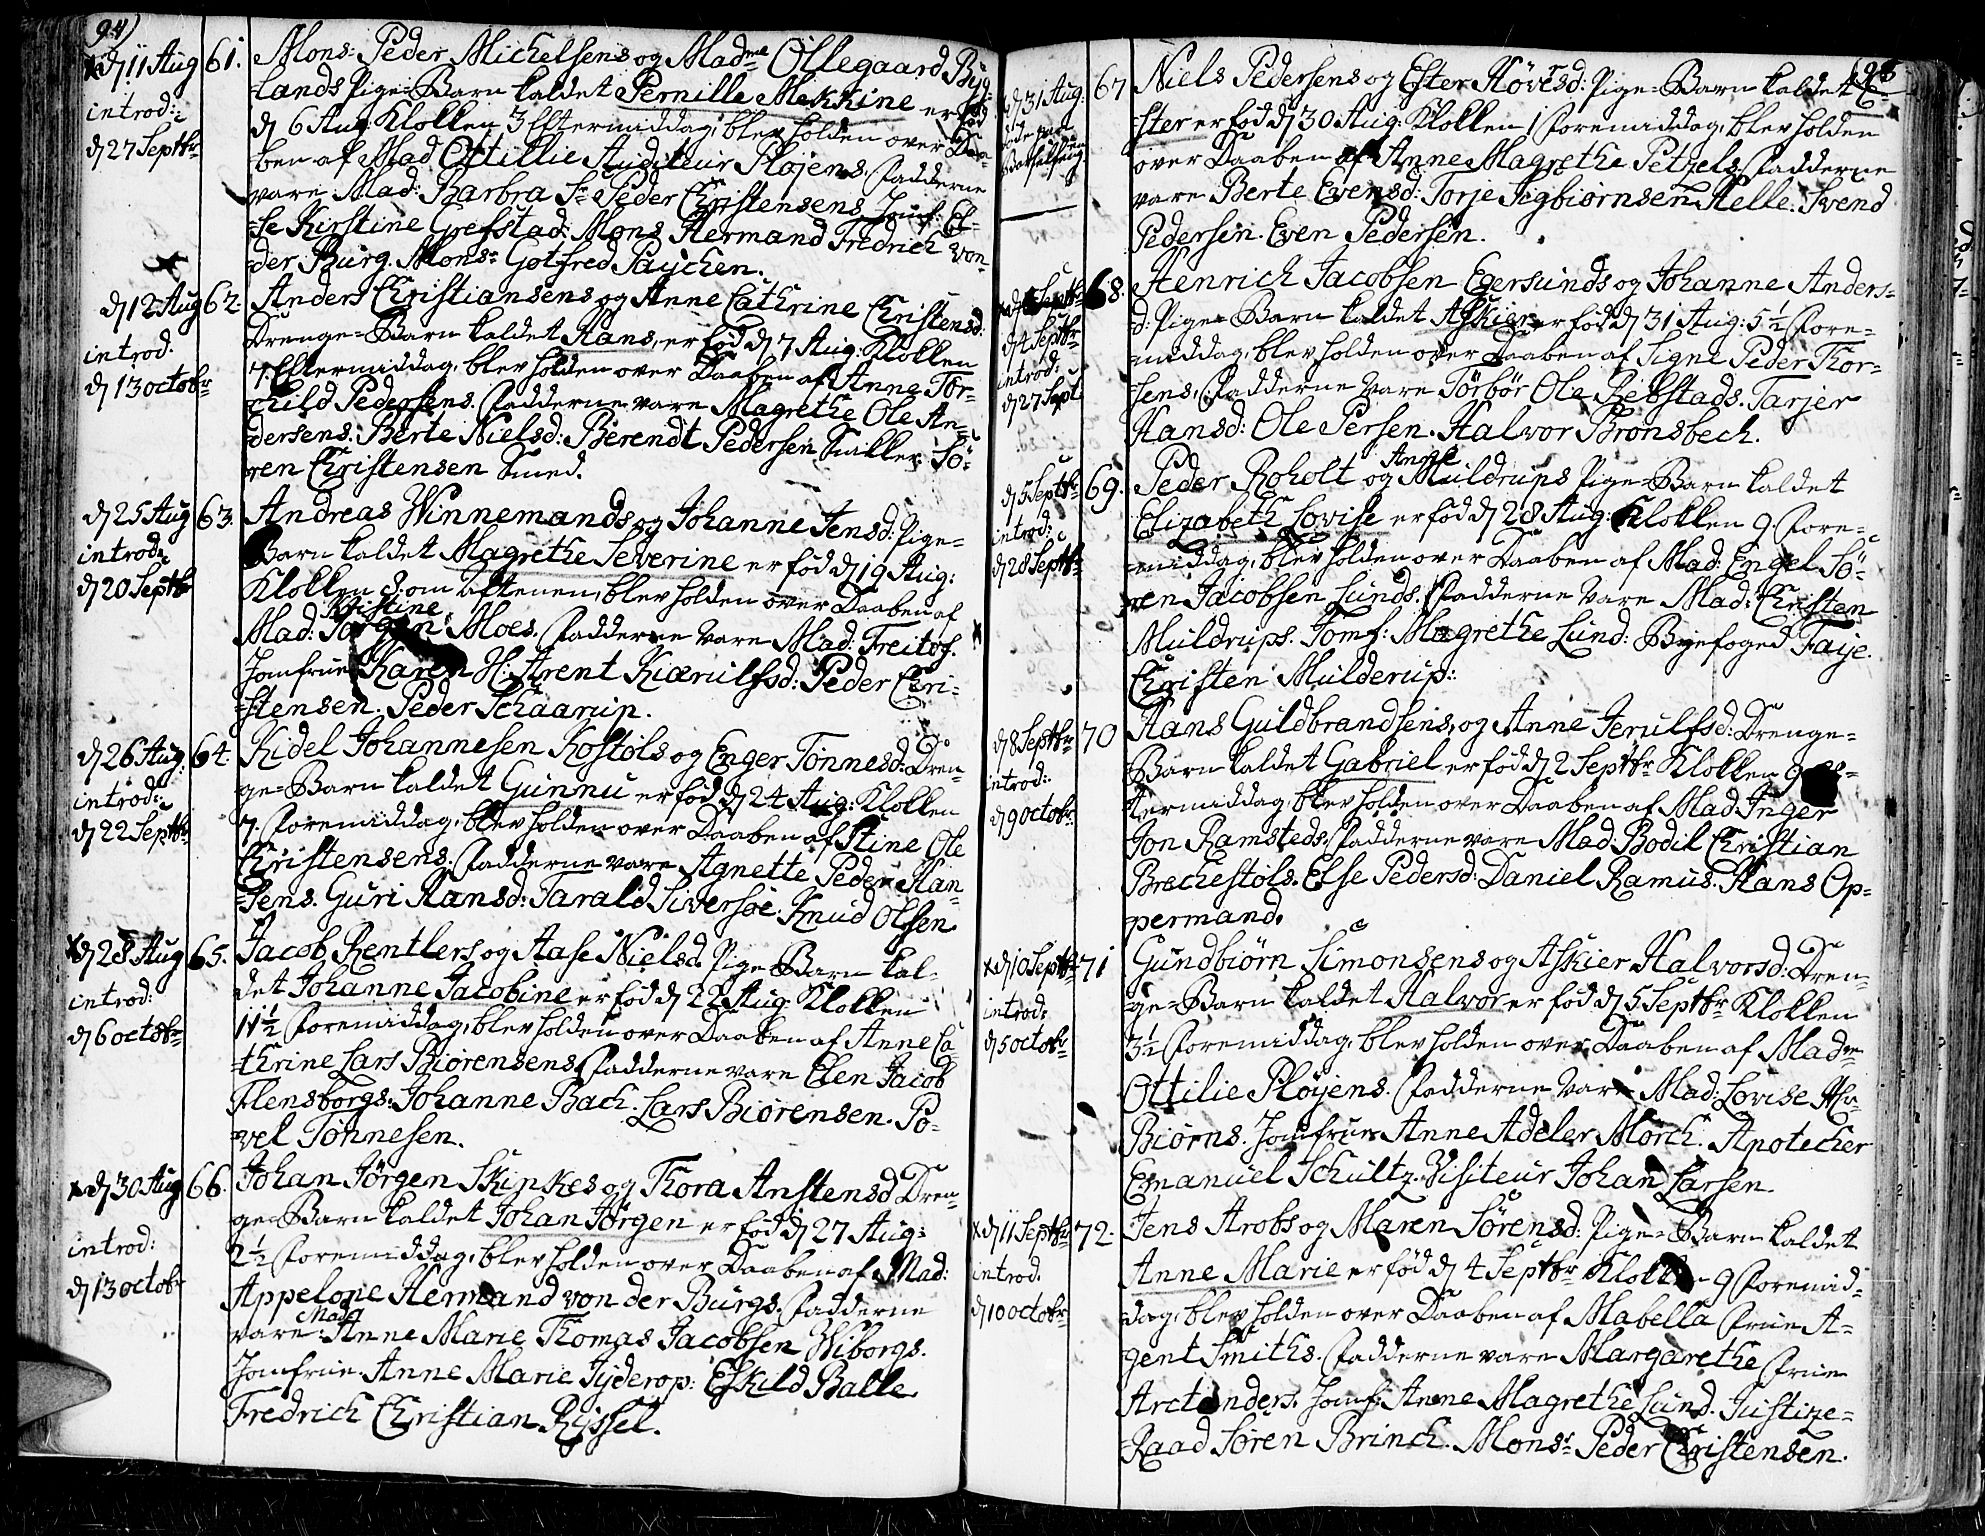 94)
d 11 Aug 61. Mons: Peder Michelsens og Madme Ollegaard Byg-
introd: lands Pige-Barn kaldet Pernille Mekkine er fød
d 27 Septbr d 6 Aug: Klokken 3 Eftermiddag, blev holden over Daa-
ben af Mad Ottillie Auditeur Pløjens. Fadderne
vare Mad: Barbra Sr Peder Christensens Jomf: El-
se Kirstine Grefstad: Mons Hermand Fredrich von-
der Burg. Monsr Gotfred Paychen.
d 12 Aug 62. Anders Christiansens og Anne Cathrine Christensd:
introd. Drenge-Barn kaldet Hans, er fød d 7 Aug: Klokken
d 13 octobr 7. Eftermiddag, blev holden over Daaben af Anne Tor-
child Pedersens. Fadderne vare Magrethe Ole An-
dersens. Berte Nielsd: Berendt Pedersen Snikker. Sö-
ren Christensen Smed.
d 25 Aug 63. Andreas Winnemands og Johanne Jensd: Pige-
introd: Barn kaldet Magrethe Severine er fød d 19 Aug:
d 20 Septbr Klokken 8. om Aftenen, blev holden over Daaben af
Kristine
Mad: Jörgen Moes. Fadderne vare Mad: Freitof.
Jomfrue Karen H: Arent Kiærulfsd: Peder Chri-
stensen. Peder Schaarup.
d 26 Aug: 64. Kidel Johannesen Kostöls og Enger Tönnesd: Dren-
introd: ge-Barn kaldet Gunnu er fød d 24 Aug: Klokken
d 22 Septbr 7. Foremiddag, blev holden over Daaben af Stine Ole
Christensens. Fadderne vare Agnette Peder Han-
sens. Guri Hansd: Tarald Siversöe. Knud Olsen
d 28 Aug 65. Jacob Rentlers og Aase Nielsd. Pige-Barn kal-
introd: det Johanne Jacobine er fød d 22 Aug. Klokken
d 6 octobr 11½ Foremiddag, blev holden over Daaben af Anne Ca-
thrine Lars Biörensens. Fadderne vare Elen Jacob
Flensborgs. Johanne Bach. Lars Biörensen. Po-
vel Tönnesen.
d 30 Aug 66. Johan Jörgen Skinkes og Thora Anstensd Dren-
introd: ge-Barn kaldet Johan Jörgen er fød d 27 Aug:
d 13 octobr 2½ Foremiddag, blev holden over Daaben af Mad:
Appelone Hermand von der Burgs. Fadderne
Mad
vare: Anne Marie Thomas Jacobsen Wiborgs.
Jomfrue Anne Marie Tyderop: Eskild Balle.
Fredrich Christian Ryssel.
95
d 31 Aug: 67 Niels Pedersens og Ester Hövesd: Pige-Barn kaldet E-
ster er fød d 30 Aug: Klokken 1 Foremiddag, blev holden
over Daaben af Anne Magrethe Petzels. Fadderne
vare Berte Evensd: Torje Sigbiörnsen Helle. Svend
Pedersen. Even Pedersen.
68. Henrich Jacobsen Egersunds og Johanne Anders-
d 4 Septbr d: Pige-Barn kaldet Askier er fød d 31 Aug: 5½ Fore-
introd: middag, blev holden over Daaben af Signe Peder Thor-
d 27 Sept sens, Fadderne vare Törbör Ole Rebstads. Tarjer
Hansd: Ole Persen. Halvor Bronsbech.
Anne
d 5 Septbr 69. Peder Roholt og Muldrups Pige-Barn kaldet
introd: Elizabeth Lovise er fød d 28 Aug: Klokken 9. Fore-
d 28 Septbr middag, blev holden over Daaben af Mad: Engel Sö-
ren Jacobsen Lunds. Fadderne vare Mad: Christen
Muldrups. Jomf: Magrethe Lund: Byefoged Faije.
Christen Mulderup:
d 8 Septbr 70 Hans Guldbrandsens, og Anne Jerulfsd: Drenge-
introd: Barn kaldet Gabriel er fød d 2 Septbr Klokken 9
d 9 octobr termiddag, blev holden over Daaben af Mad Inger
Jon Ramsteds. Fadderne vare Mad Bodil Christian
Brechestöls. Else Pedersd: Daniel Ramus. Hans Op-
permand.
d 10 Septbr 71 Gundbiörn Simonsens og Askier Halvorsd: Dren-
introd: ge-Barn kaldet Halvor er fød d 5 Septbr Klokken
d 5 octobr 3½ Foremiddag, blev holden over Daaben af Madme
Ottilie Pløyens. Fadderne vare Mad: Lovise
Biörns. Jomfrue Anne Adeler Morch. Apotecher
Emanuel Schultz. Visiteur Johan Larsen.
d 11 Septbr 72. Jens Arobs og Maren Sörensd: Pige-Barn kaldet
introd. Anne Marie er fød d 4 Septbr Klokken 9 Foremid-
d 10 octobr dag, blev holden over Daaben af Mabella Frue A-
gent Smiths. Fadderne vare Margarethe Frue
Arctanders. Jomf: Anne Magrethe Lund. Justize-
Raad Sören Brinch. Monsr Peder Christensen.